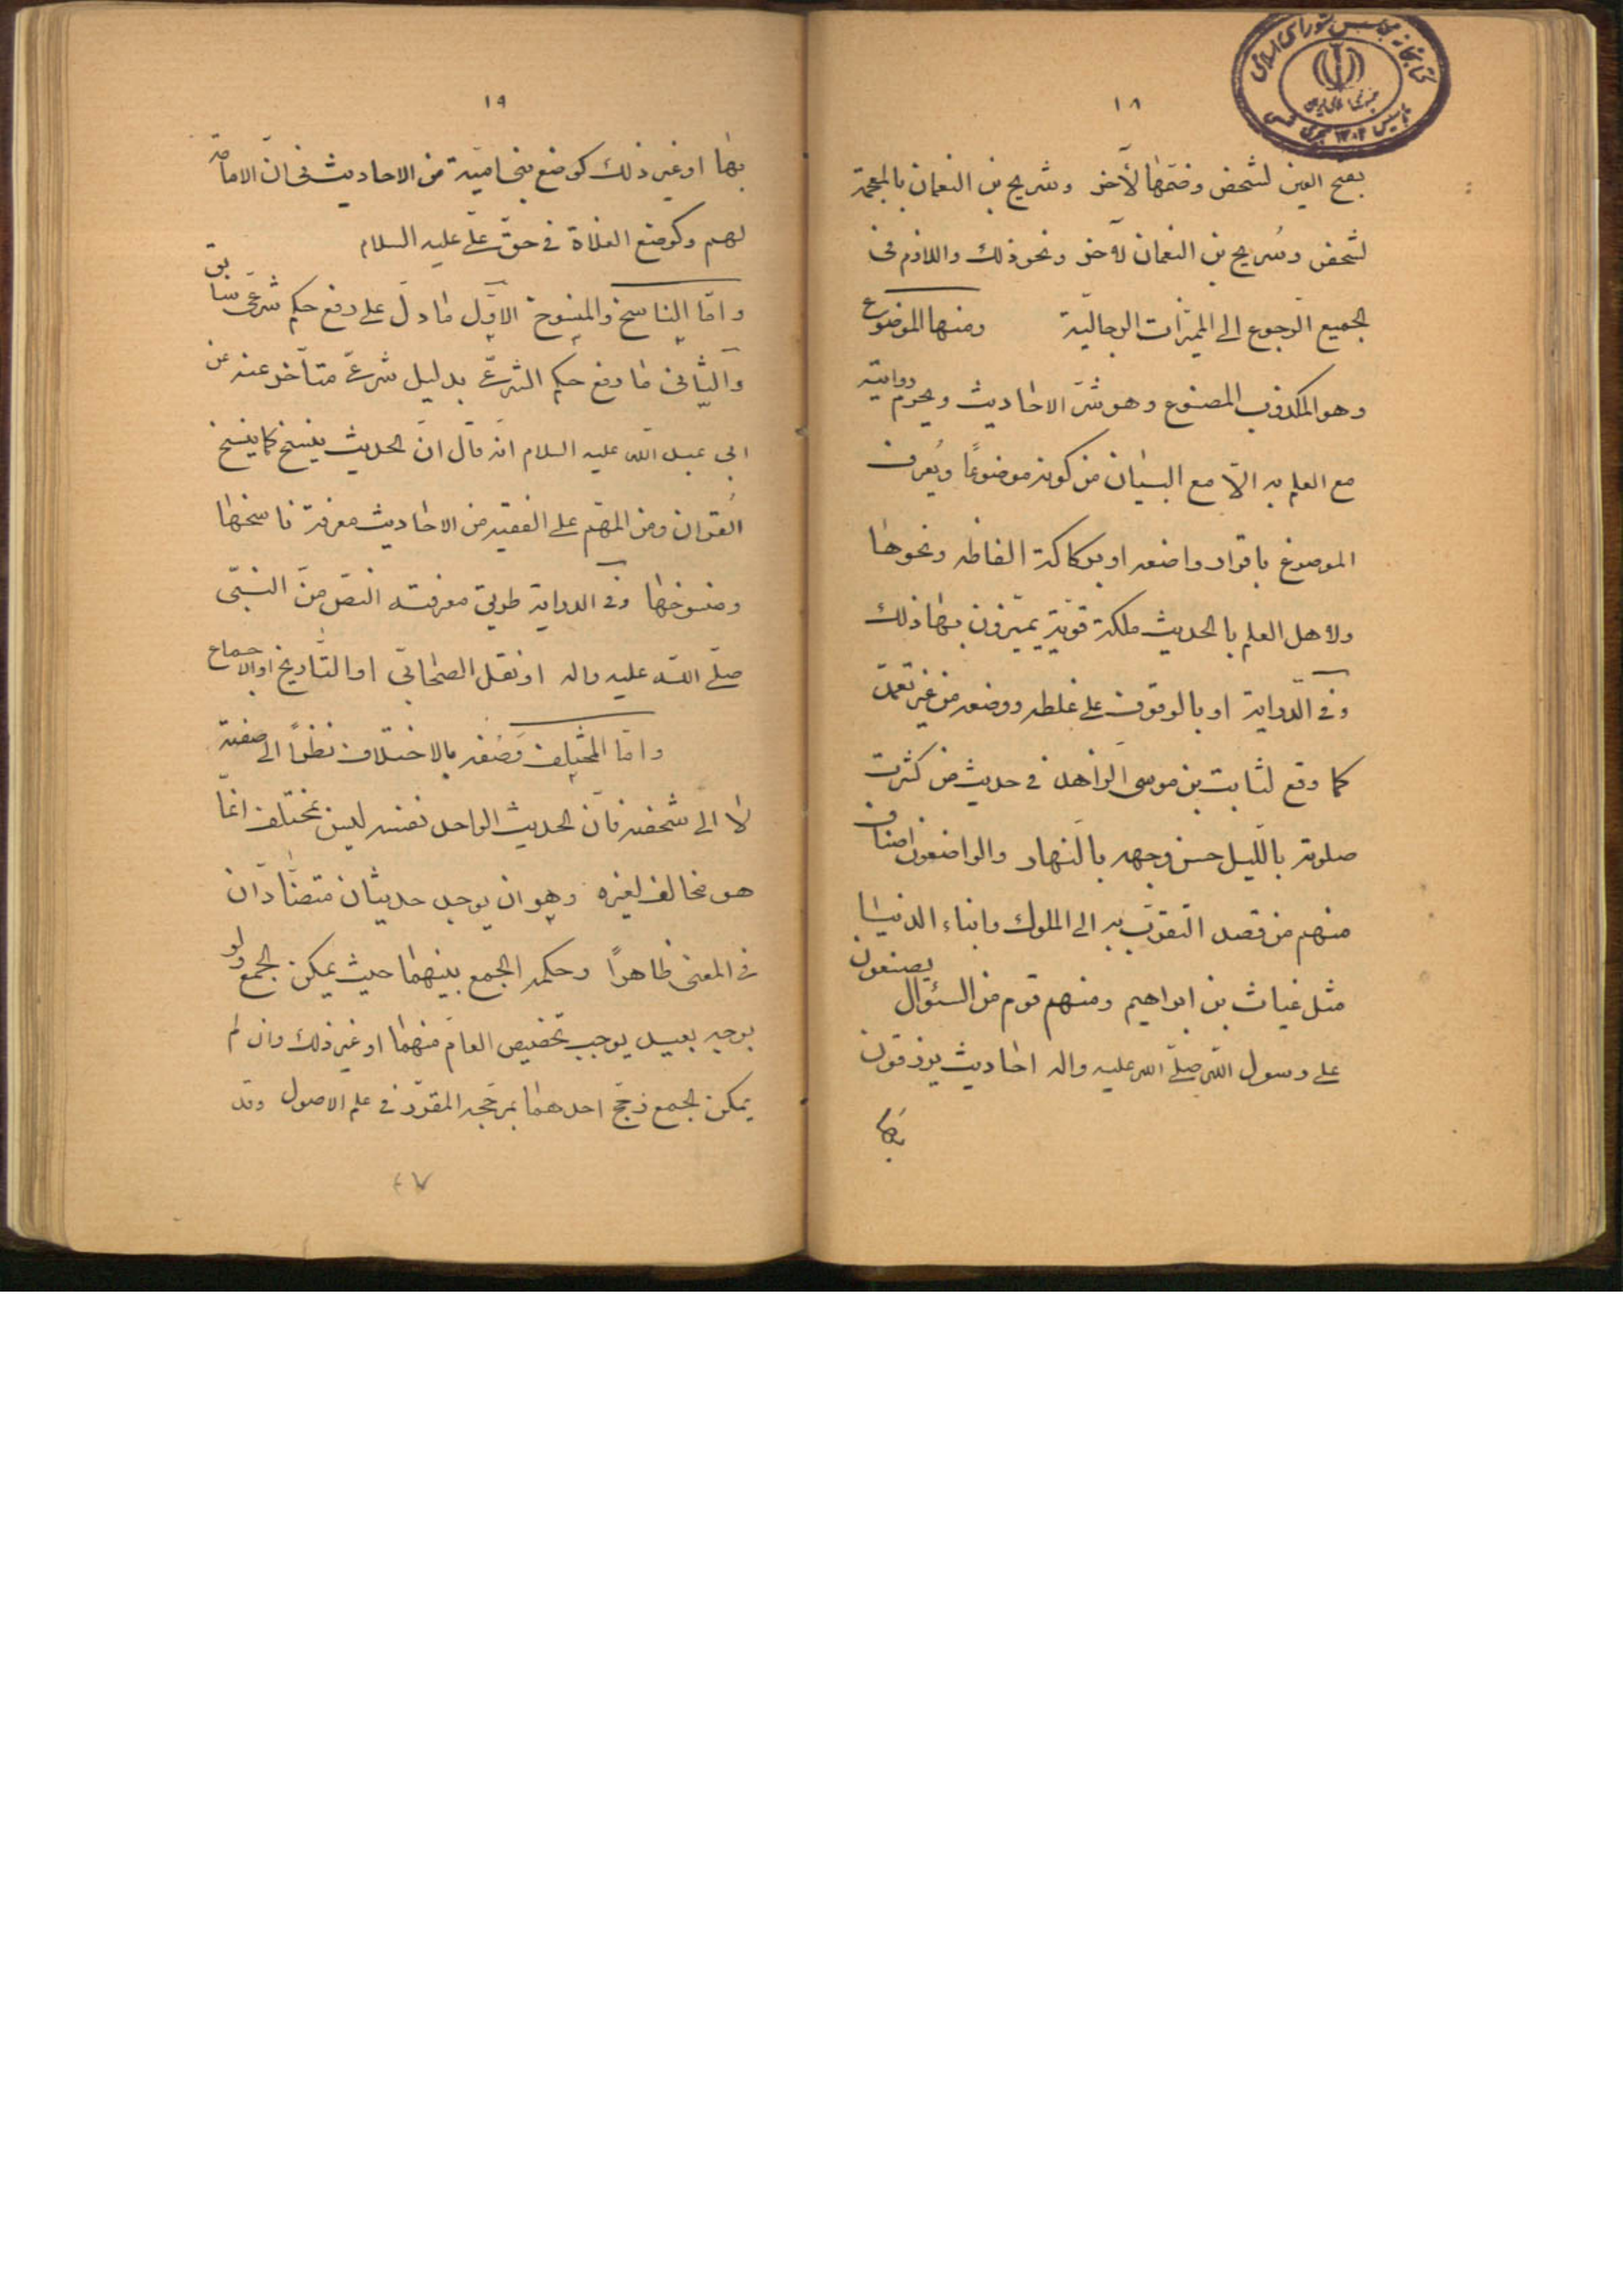 ١٨
بفتح العين لشخص وضمّها لآخر وشريح بن النعمان بالمعجمة
لشخص وسُريج بن النعمان لآخر ونحو ذلك واللازم فى
الجميع الرّجوع الى المميّزات الرجاليّة ومنها الموضوع
وهو المكذوب المصنوع وهو شرّ الاحاديث ويحرم روايته
مع العلم به الّا مع البيان من كونه موضوعًا ويُعرف
الموضوع باقرار واضعه او بركاكة الفاظه ونحوها
ولاهل العلم بالحديث ملكة قويّة يميّزون بها ذلك
وفى الدّراية او بالوقوف على غلطه ووضعه من غير تعمّد
كما وقع لثابت بن موسى الزاهد فى حديث من كثرت
صلوته بالّليل حسن وجهه بالنهار والواضعون اصناف
منهم من قصد التقرّب به الى الملوك وابناء الدنيا
مثل غياث بن ابراهيم ومنهم قوم من السئوّال يصنعون
على رسول اللّه صلّى الله عليه واله احاديث يرزقون
بها
كتابخانه مجلس شوراى اسلامى
١٩
بها او غير ذلك كوضع بنى اميّة من الاحاديث فى انّ الامامة
لهم وكوضع الغلاة فى حقّ علىّ عليه السلام
وامّا الناسخ والمنسوخ الاوّل ما دلّ على رفع حكم شرعىّ سابق
والثانى ما رفع حكمه الشرعىّ بدليل شرعىّ متأخر عنه عن
ابى عبد اللّه عليه السلام انّه قال انّ الحديث ينسخ كما ينسخ
القران ومن المهّم على الفقيه من الاحاديث معرفة ناسخها
ومنسوخها وفى الدراية طريق معرفته النصّ من النبّى
صلّى اللّه عليه واله او نقل الصحابّى او التّاريخ او الاجماع
وامّا المختلف وَصْفه بالاختلاف نظرًا الى صفته
لا الى شخصه فانّ الحديث الواحد نفسه ليس بمختلف انّما
هو مخالف لغيره وهو ان يوجد حديثان متضادّان
فى المعنى ظاهرًا وحكمه الجمع بينهما حيث يمكن الجمع ولو
بوجه بعيد يوجب تخصيص العامّ منهما او غير ذلك وان لم
يمكن الجمع رجّح احدهما بمرجّحه المقرّر فى علم الاصول وقد